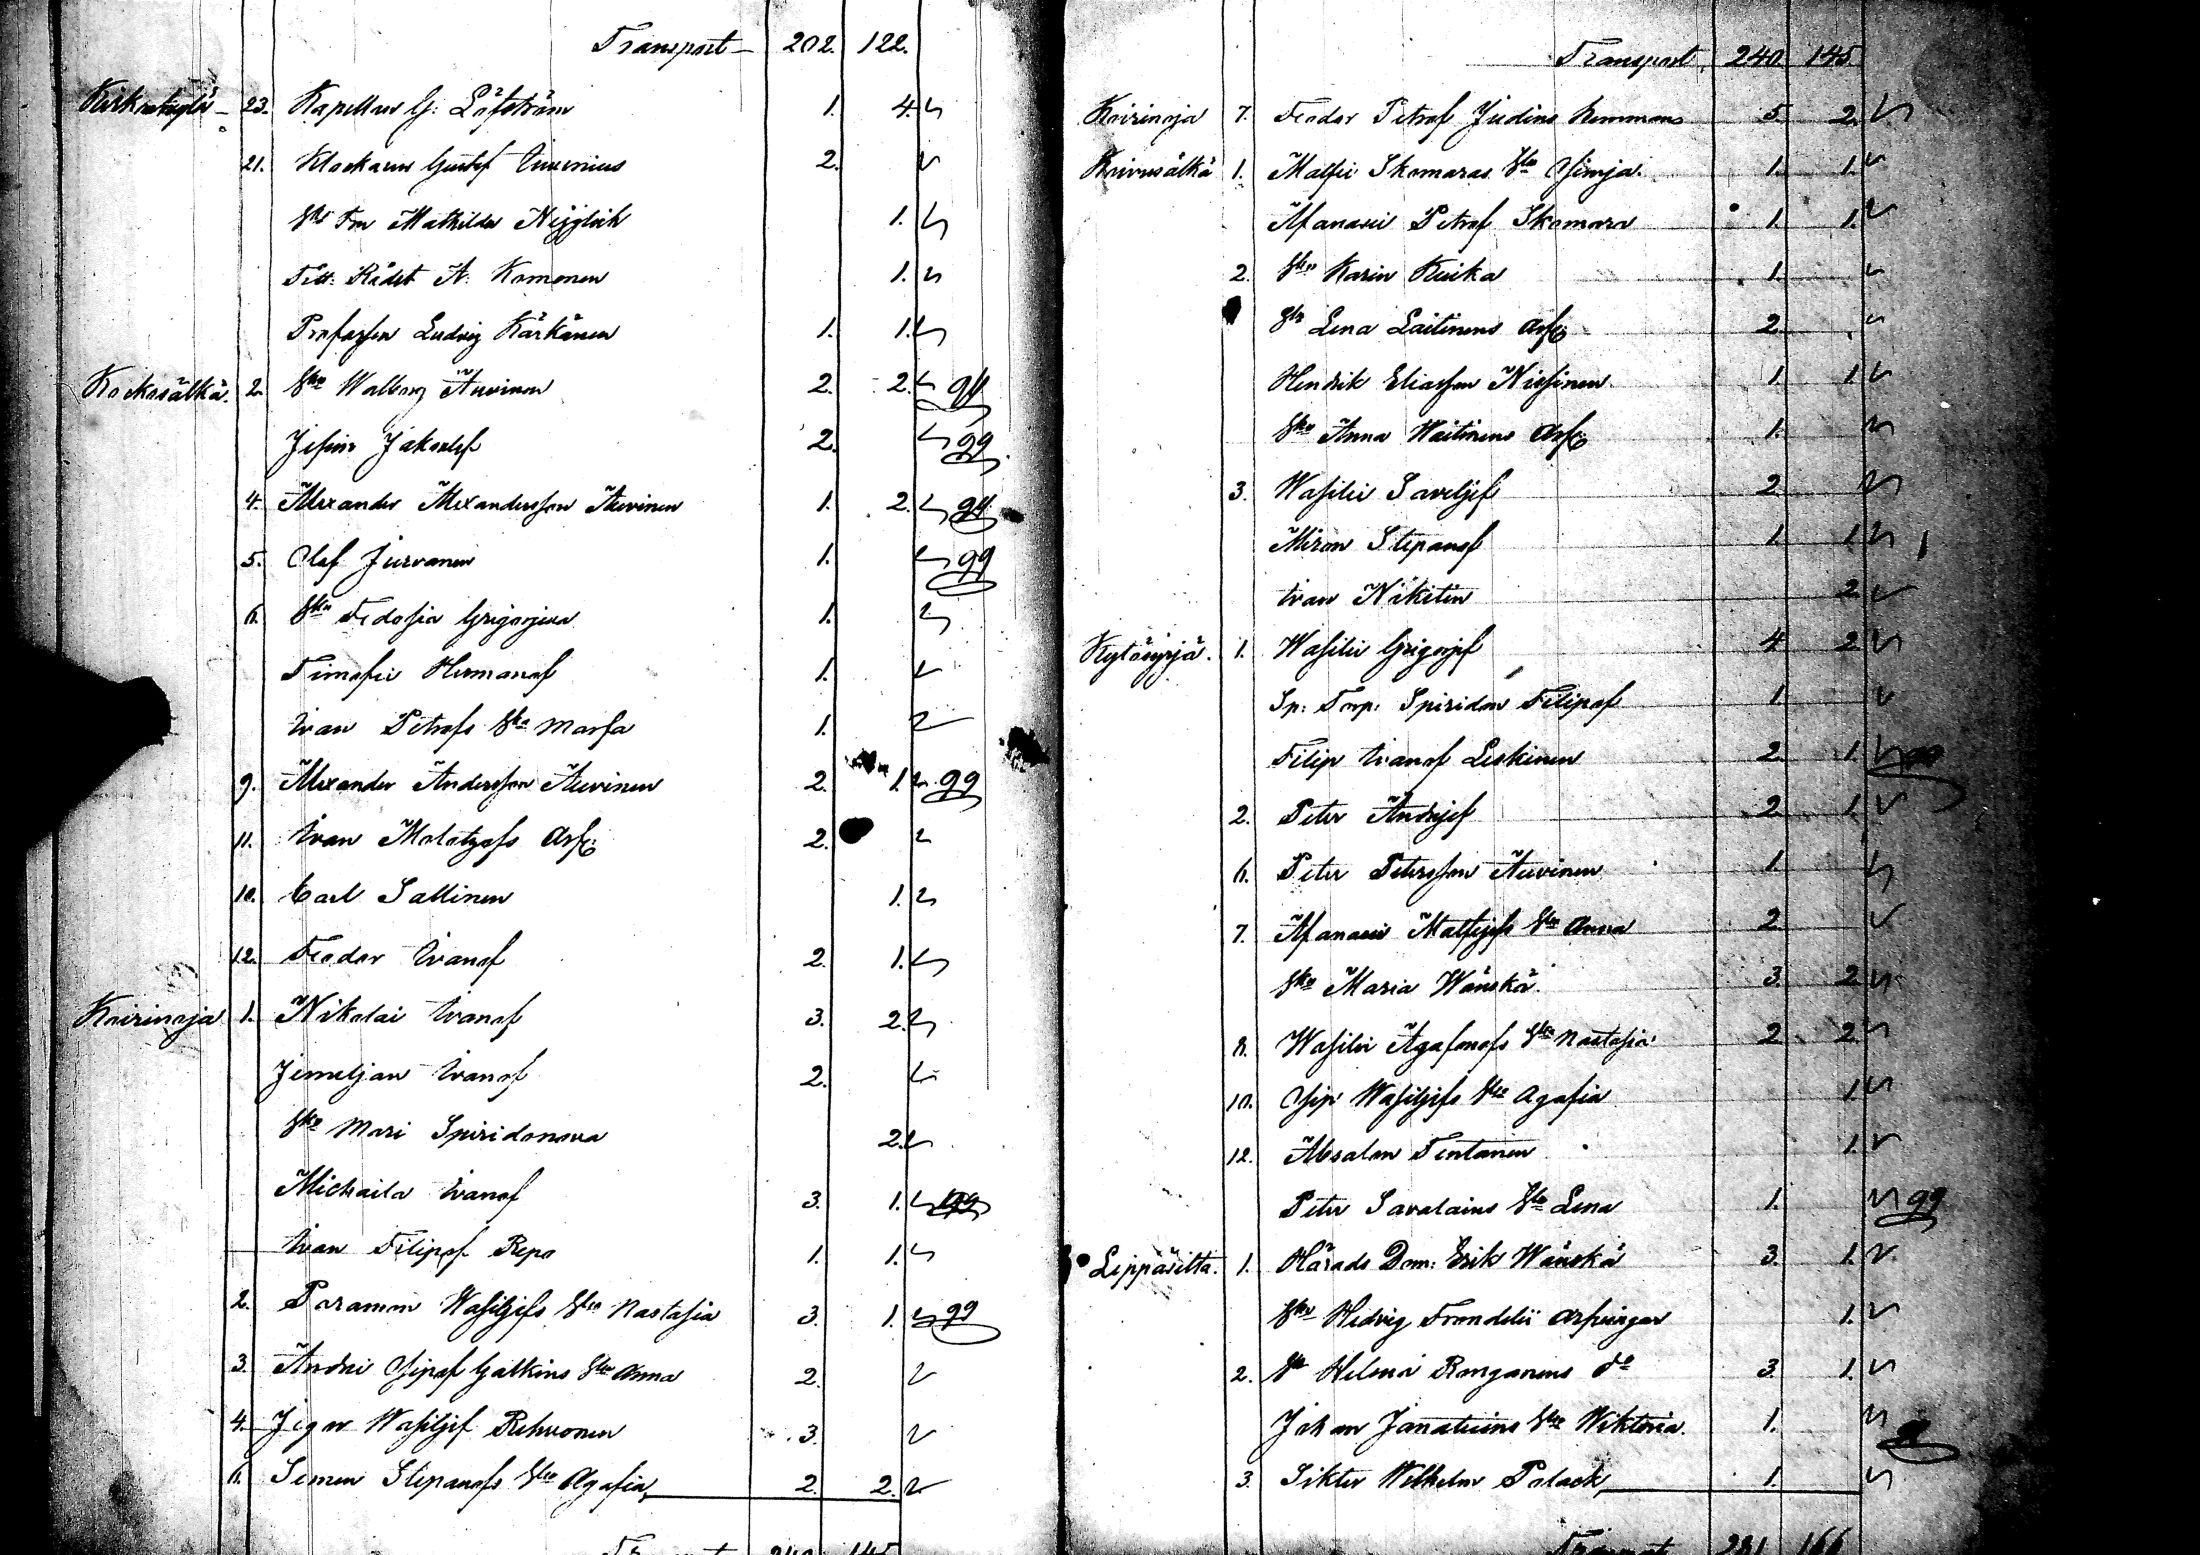 Transport 202. 122.
23. Kapellan G: Löfström 1. 4.
21. Klockaren Gustaf 2.
Mathilda 1.
Tit: Rådet A. Komonen 1.
Professor Ludvig Kärkänen 1. 1.
Kockosälkä. 2. Walborg Auvinen 2. 2. 94
Jefim Jakovlef 2. 99
4. Alexander Alexandersson Auvinen 1. 2. 94
5. Olof Jurvanen 1. 99
6. Fedosia Grigorjeva 1.
Timofei Hermanof 1.
Ivan Petrofs Marfa 1.
9. Alexander Andersson Auvinen 2. 1. 99
11. Ivan Arfv: 2.
10. Carl Sallinen 1.
12. Feodor Ivanof 2. 1.
Koirinoja 1. Nikolai Ivanof 3. 2.
Jemeljan Ivanof 2.
Mari Spiridonova 2.
Michaila Ivanof 3. 1. 99
Ivan Filipof Repo 1. 1.
2. Paramon Wasiljefs Nastasia 3. 1. 99
3. Andrei Osipof Galkins Anna 2.
4. Jegor Wasiljef Rehvonen 3.
6. Semen Stepanofs Agafia 2. 2.
240 145
Transport 240 145
Koirinoja 7. Feodor Petrof Judins 5. 2.
Koivusälkä 1. Matfei Skomaras 1. 1.
Afanasii Petrof Skomara 1. 1.
2. Karin Kuika 1.
Lena Laitinens Arfv: 2.
Hendrik Eliasson Nissinen 1. 1.
Anna Waitinens Arfv: 1.
3. Wasilii Saveljef 2.
Miron Stepanof 1. 1.
Ivan Nikitin 2.
Kytösyrjä. 1. Wasilii Grigorjef 4 2
Sp: Torp: Spiridon Filipof 1.
Filip Ivanof Leskinen 2. 1.
2. Peter Andrejef 2. 1.
6. Peter Petersson Auvinen 1.
7. Afanasii Matfejefs Anna 2.
Maria Wänskä. 3. 2
8. Wasilii Agafonofs Nastasia 2 2
10. Osip Wasiljefs Agafia 1.
12. Absalon Tentanen 1.
Peter Savolains Lena 1. 99
Leppäsilta. 1. Härads Dom: Erik Wänskä 3. 1.
Hedvig Arfvingar 1.
2. Helena Ronganens do 3 1.
Johan Wiktoria. 1.
3. Wilhelm Polack 1.
Transport 281 166